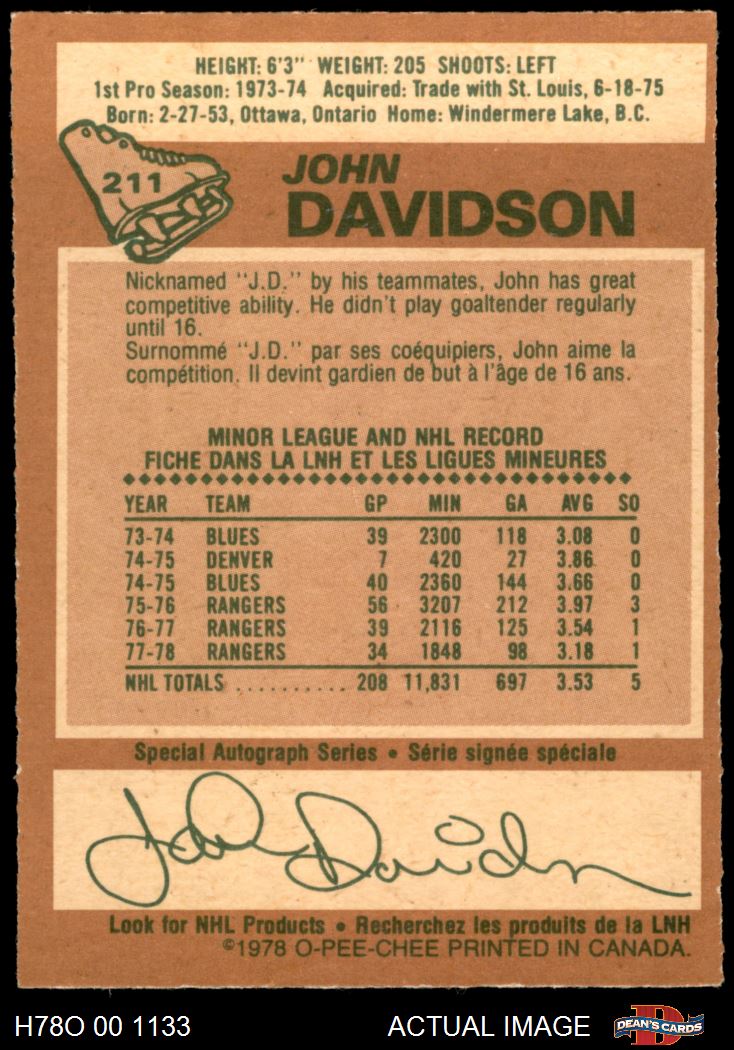 HEIGHT: 6'3" WEIGHT: 205 SHOOTS: LEFT
1st Pro Season: 1973-74 Acquired: Trade with St. Louis, 6-18-75
Born: 2-27-53, Ottawa, Ontario Home: Windermere Lake, B.C.
211
JOHN
DAVIDSON
Nicknamed "J.D." by his teammates, John has great
competitive ability. He didn't play goaltender regularly
until 16.
Surnommé "J.D." par ses coéquipiers, John aime la
compétition. Il devint gardien de but à l'âge de 16 ans.
MINOR LEAGUE AND NHL RECORD
FICHE DANS LA LNH ET LES LIGUES MINEURES
YEAR TEAM GP MIN GA AVG SO
73-74 BLUES 39 2300 118 3.08 0
74-75 DENVER 7 420 27 3.86 0
74-75 BLUES 40 2360 144 3.66 0
75-76 RANGERS 56 3207 212 3.97 3
76-77 RANGERS 39 2116 125 3.54 1
77-78 RANGERS 34 1848 98 3.18 1
NHL TOTALS .......... 208 11,831 697 3.53 5
Special Autograph Series • Série signée spéciale
John Davidson
Look for NHL Products • Recherchez les produits de la LNH
©1978 O-PEE-CHEE PRINTED IN CANADA.
H78O 00 1133 ACTUAL IMAGE DEAN'S CARDS